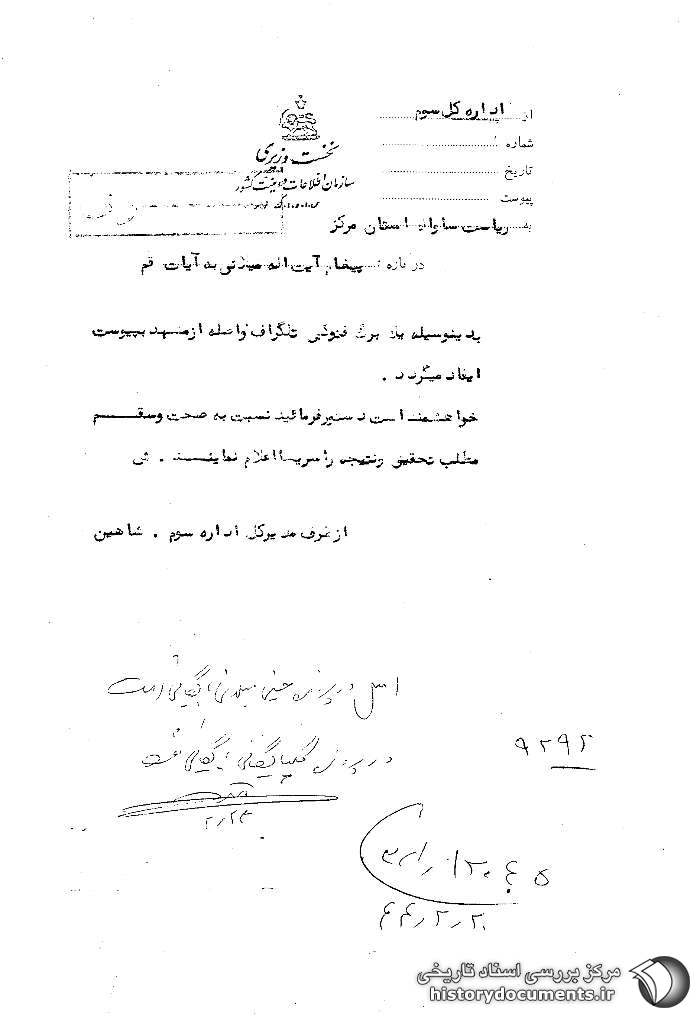 از اداره کل سوم
شماره
تاریخ
پیوست
نخست وزیری
سازمان اطلاعات و امنیت کشور
س.ا.و.ا.ک
به ریاست ساواک استان مرکز
درباره پیغام آیت اله میلانی به آیات قم
بدینوسیله یک برگ فتوکپی تلگراف واصله از مشهد بپیوست
ایفاد میگردد .
خواهشمند است دستور فرمائید نسبت به صحت وسقم
مطلب تحقیق ونتیجه را سریعا اعلام نمایند . ش
از طرف مدیرکل اداره سوم . شاهین
اصل در پرونده میلانی بایگانی است
در پرونده گلپایگانی بایگانی شود
۲/۲۳
۹۲۹۲
۴۴/۲/۲۰
مرکز بررسی اسناد تاریخی
historydocuments.ir